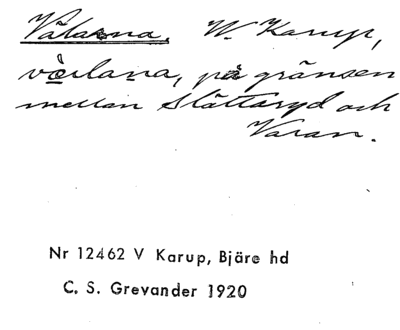 Vålarna. W. Karup,
på gränsen
mellan Slättaryd och
Varan.
Nr 12462 V Karup, Bjäre hd
C. S. Grevander 1920